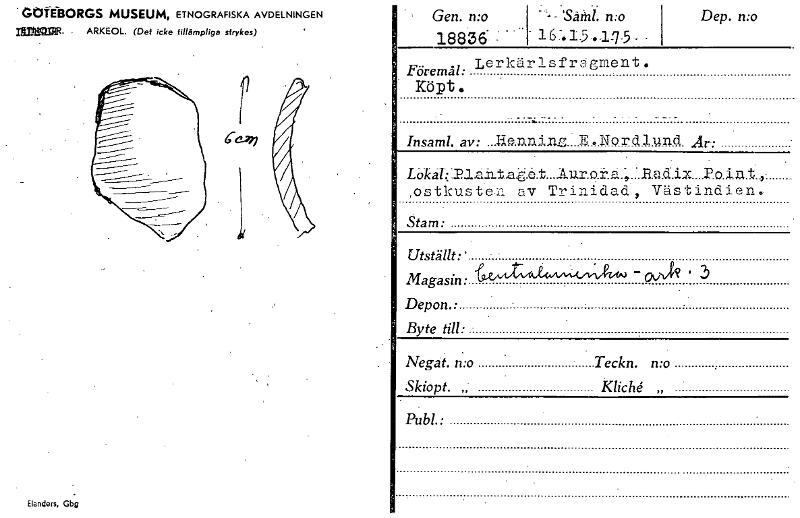 GÖTEBORGS MUSEUM, ETNOGRAFISKA AVDELNINGEN
ETNOGR. ARKEOL. (Det icke tillämpliga strykes)
6 cm
Elanders, Gbg
Gen. n:o Saml. n:o Dep. n:o
18836 16.15.175
Föremål: Lerkärlsfragment.
Köpt.
Insaml. av: Henning E.Nordlund År:
Lokal: Plantaget Aurora, Radix Point,
ostkusten av Trinidad, Västindien.
Stam:
Utställt:
Magasin: Centralamerika - ark. 3
Depon.:
Byte till:
Negat. n:o Teckn. n:o
Skiopt. „ Kliché „
Publ.: